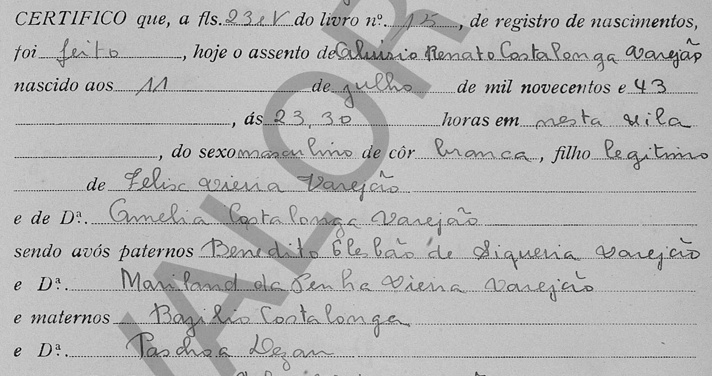 CERTIFICO que, a fls. 23 e V do livro nº. 15, de registro de nascimentos,
foi feito, hoje o assento de Aluisio Renato Costalonga Varejão
nascido aos 11 de julho de mil novecentos e 43
, ás 23,30 horas em nesta vila
, do sexo masculino de côr branca, filho legitimo
de Felix Vieira Varejão
e de Dª. Amelia Costalonga Varejão
sendo avós paternos Benedito Elesbão de Siqueira Varejão
e Dª. Mariland da Penha Vieira Varejão
e maternos Bazilio Costalonga
e Dª. Paschoa Dezan
VALOR